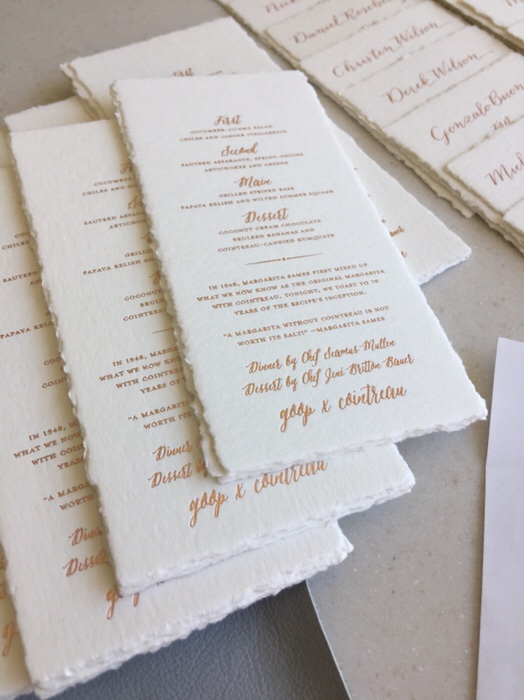 First
CUCUMBER-JICAMA SALAD
CHILES AND GINGER VINAIGRETTE
Second
SAUTEED ASPARAGUS, SPRING ONIONS
ARTICHOKE AND
Main
GRILLED STRIPED BASS
PAPAYA RELISH AND WILTED SUMMER SQUASH
Dessert
COCONUT CREAM CHOCOLATE
BRULEED BANANAS AND
COINTREAU-CANDIED KUMQUATS
IN 1948, MARGARITA SAMES FIRST MIXED UP
WHAT WE NOW KNOW AS THE ORIGINAL MARGARITA
WITH COINTREAU. TONIGHT, WE TOAST TO 70
YEARS OF THE RECIPE'S INCEPTION.
"A MARGARITA WITHOUT COINTREAU IS NOT
WORTH ITS SALT!" —MARGARITA SAMES
Dinner by Chef Seamus Mullen
Dessert by Chef Jeni Britton Bauer
goop x cointreau
PAPAYA RELISH AN
IN 1948, MARG
WHAT WE NOW KNOW
WITH COINTREAU
YEARS OF
"A MARGARITA
WORTH ITS
Dinner
Dessert
goop x cointreau
Christen Wilson
Derek Wilson